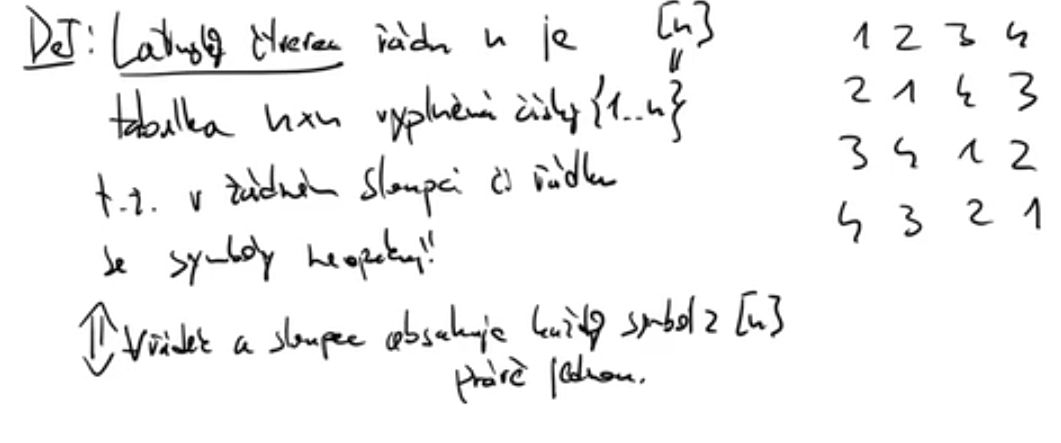 Def: Latinský čtverec řádu n je [n]
tabulka n×n vyplněná čísly {1..n}
t.ž. v žádném sloupci či řádku
se symboly neopakují
⇕ ∀ řádek a sloupec obsahuje každý symbol z [n]
právě jednou.
1 2 3 4
2 1 4 3
3 4 1 2
4 3 2 1